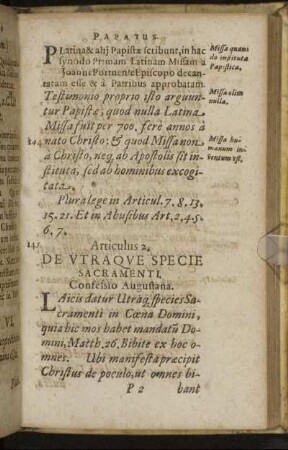 PAPATUS.
PLatina & alij Papistæ scribunt, in hac
synodo Primam Latinam Missam a
Joanne Portuensi Episcopo decan-
tatam esse & à Patribus approbatam.
Testimonio proprio isto arguun-
tur Papistæ, quod nulla Latina
Missa fuit per 700. ferè annos à
nato Christo: & quod Missa non
a Christo, neq; ab Apostolis sit in-
stituta, sed ab hominibus excogi-
tata.
Missa quan-
do instituta
Papistica.
Missa olim
nulla.
Missa hu-
manum in-
ventum est.
244.
Plura lege in Articul. 7. 8. 13.
15. 21. Et in Abusibus Art, 2,4.5.
6, 7.
245
Articulus 2.
DE VTRAQVE SPECIE
SACRAMENTI.
Confessio Augustana.
LAicis datur Utraq; species Sa-
cramenti in Cœna Domini,
quia hic mos habet mandatũ Do-
mini, Matth. 26. Bibite ex hoc o-
mnes. Ubi manifestà præcipit
Christus de poculo, ut omnes bi-
P 2 bant